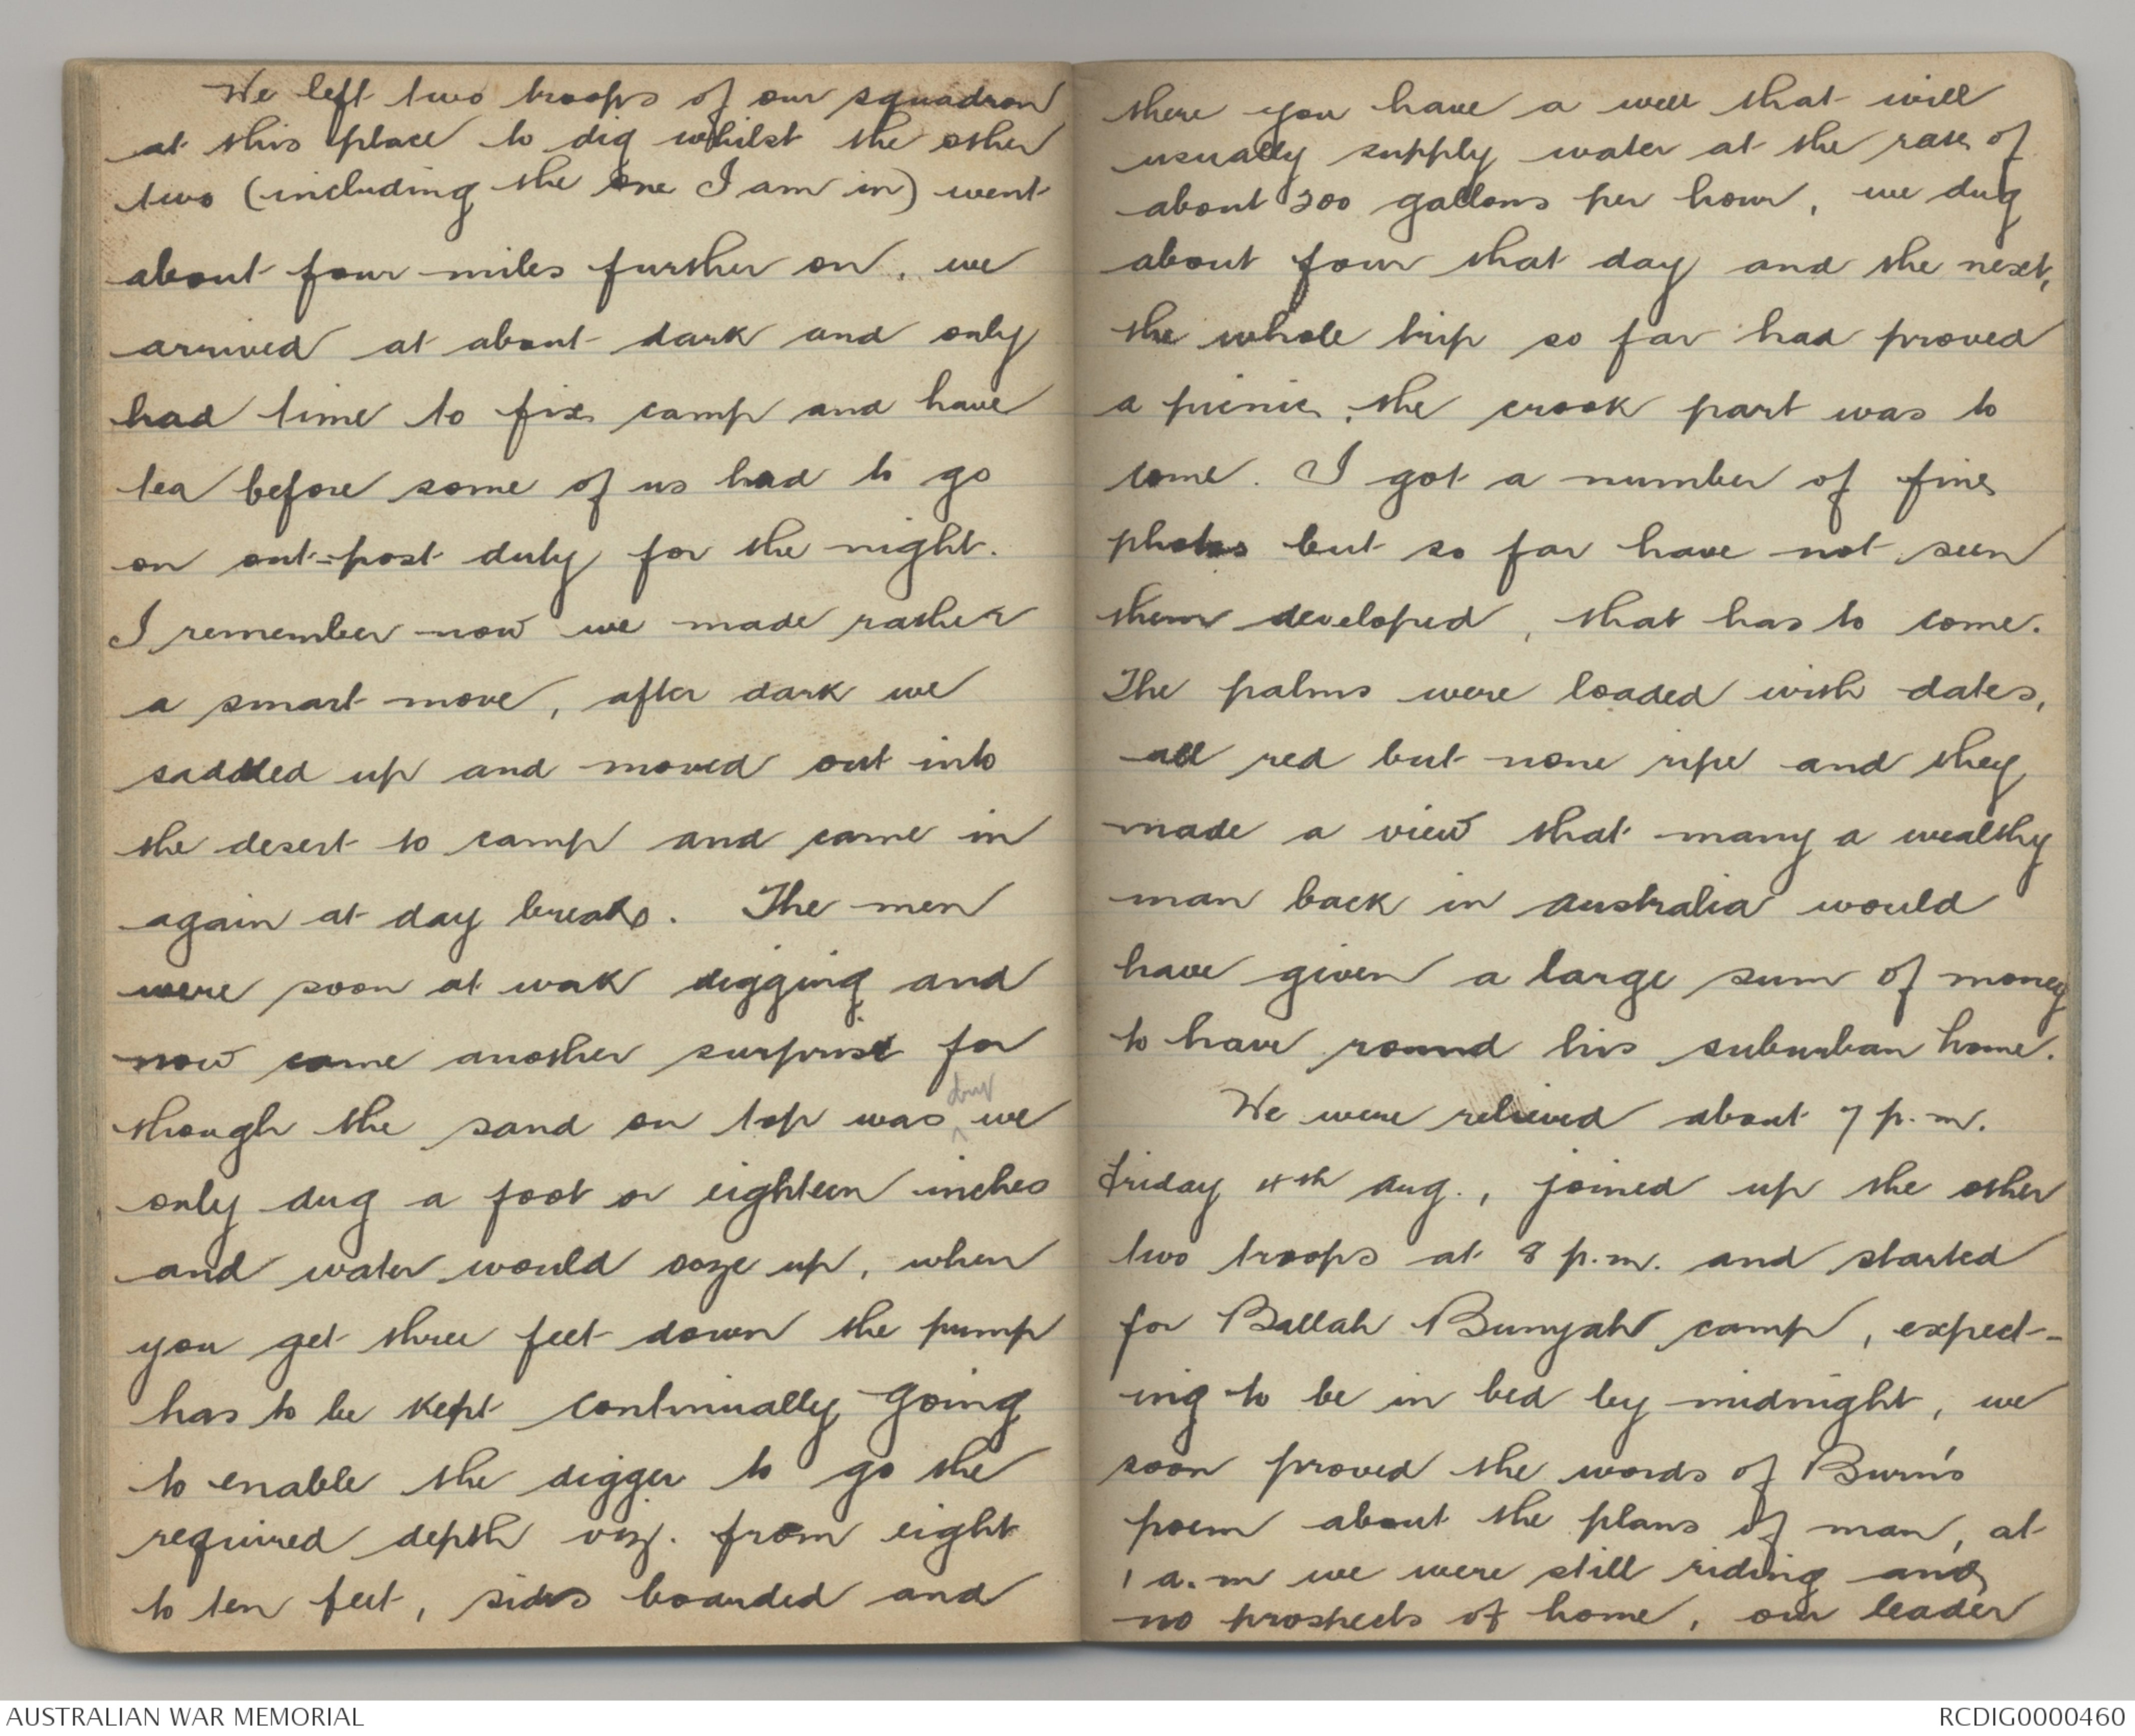 We left two troops of our squadron
at this place to dig whilst the other
two (including the one I am in) went
about four miles further on. we
arrived at about dark and only
had time to fix camp and have
tea before some of us had to go
on out-post duty for the night.
I remember now we made rather
a smart move, after dark we
saddled up and moved out into
the desert to camp and came in
again at day break. The men
were soon at work digging and
now came another surprise for
though the sand on top was dry we
only dug a foot or eighteen inches
and water would ooze up, when
you get three feet down the pump
has to be kept continually going
to enable the digger to go the
required depth viz. from eight
to ten feet, sides boarded and
there you have a well that will
usually supply water at the rate of
about 200 gallons per hour, we dug
about four that day and the next,
the whole trip so far had proved
a picnic, the crook part was to
come. I got a number of fine
photos but so far have not seen
them developed, that has to come.
The palms were loaded with dates,
all red but none ripe and they
made a view that many a wealthy
man back in Australia would
have given a large sum of money
to have round his suburban home.
We were relieved about 7 p.m.
Friday 4th Aug., joined up the other
two troops at 8 p.m. and started
for Ballah Bunyah camp, expect-
ing to be in bed by midnight, we
soon proved the words of Burn's
poem about the plans of man, at
1 a.m we were still riding and
no prospects of home, our leader
AUSTRALIAN WAR MEMORIAL
RCDIG0000460